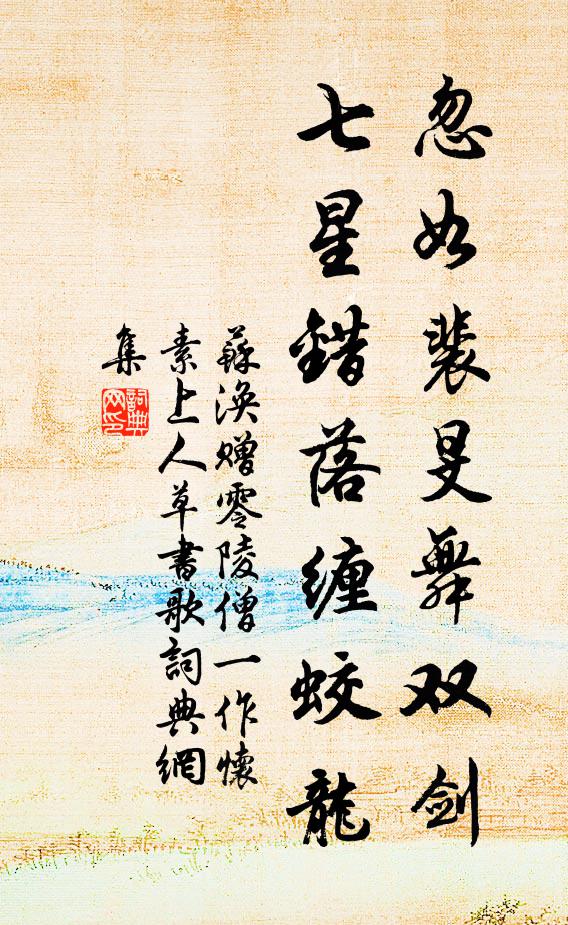 忽如裴旻舞双剑
七星错落缠蛟龙
蘇涣赠零陵僧一作懷
素上人草書歌詞典網
集
詞典
网印